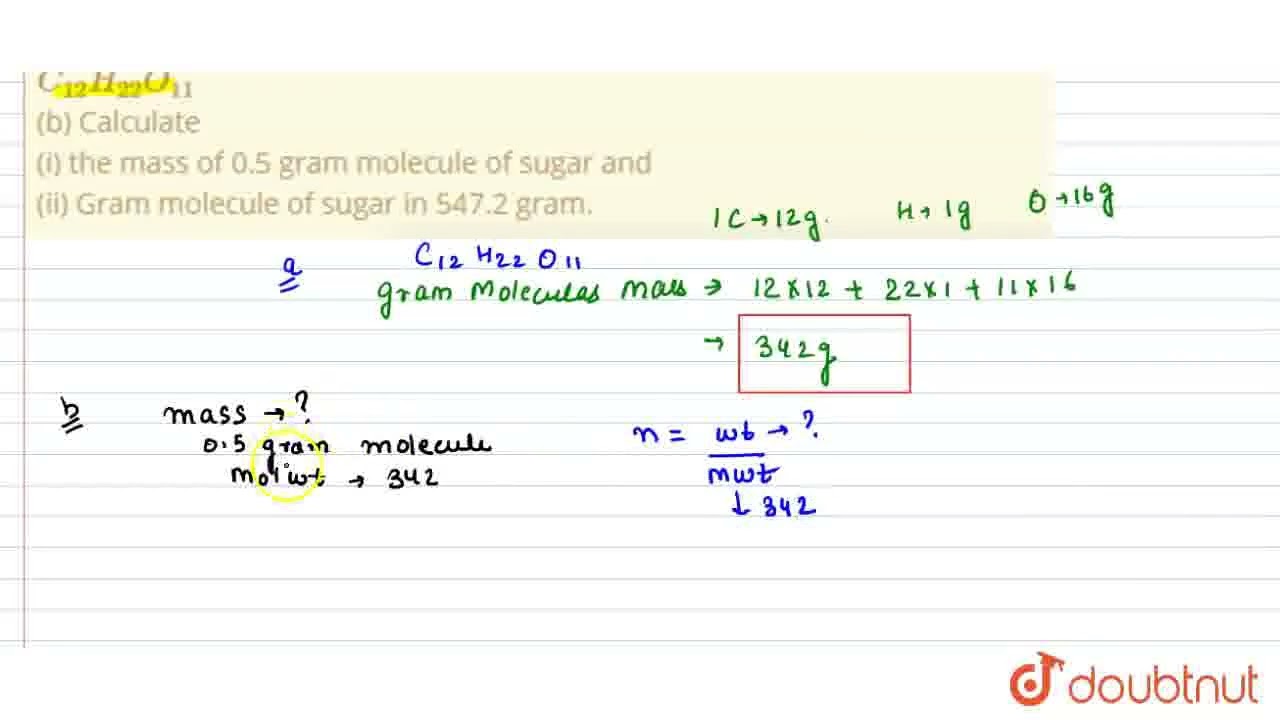 C12H22O11
(b) Calculate
(i) the mass of 0.5 gram molecule of sugar and
(ii) Gram molecule of sugar in 547.2 gram.
1C → 12g. H → 1g O → 16g
a C12 H22 O11
gram Moleculas mass → 12×12 + 22×1 + 11×16
→ 342g
b mass → ?
0.5 gram molecule
mol wt → 342
n = wt → ?
mwt
↓ 342
doubtnut